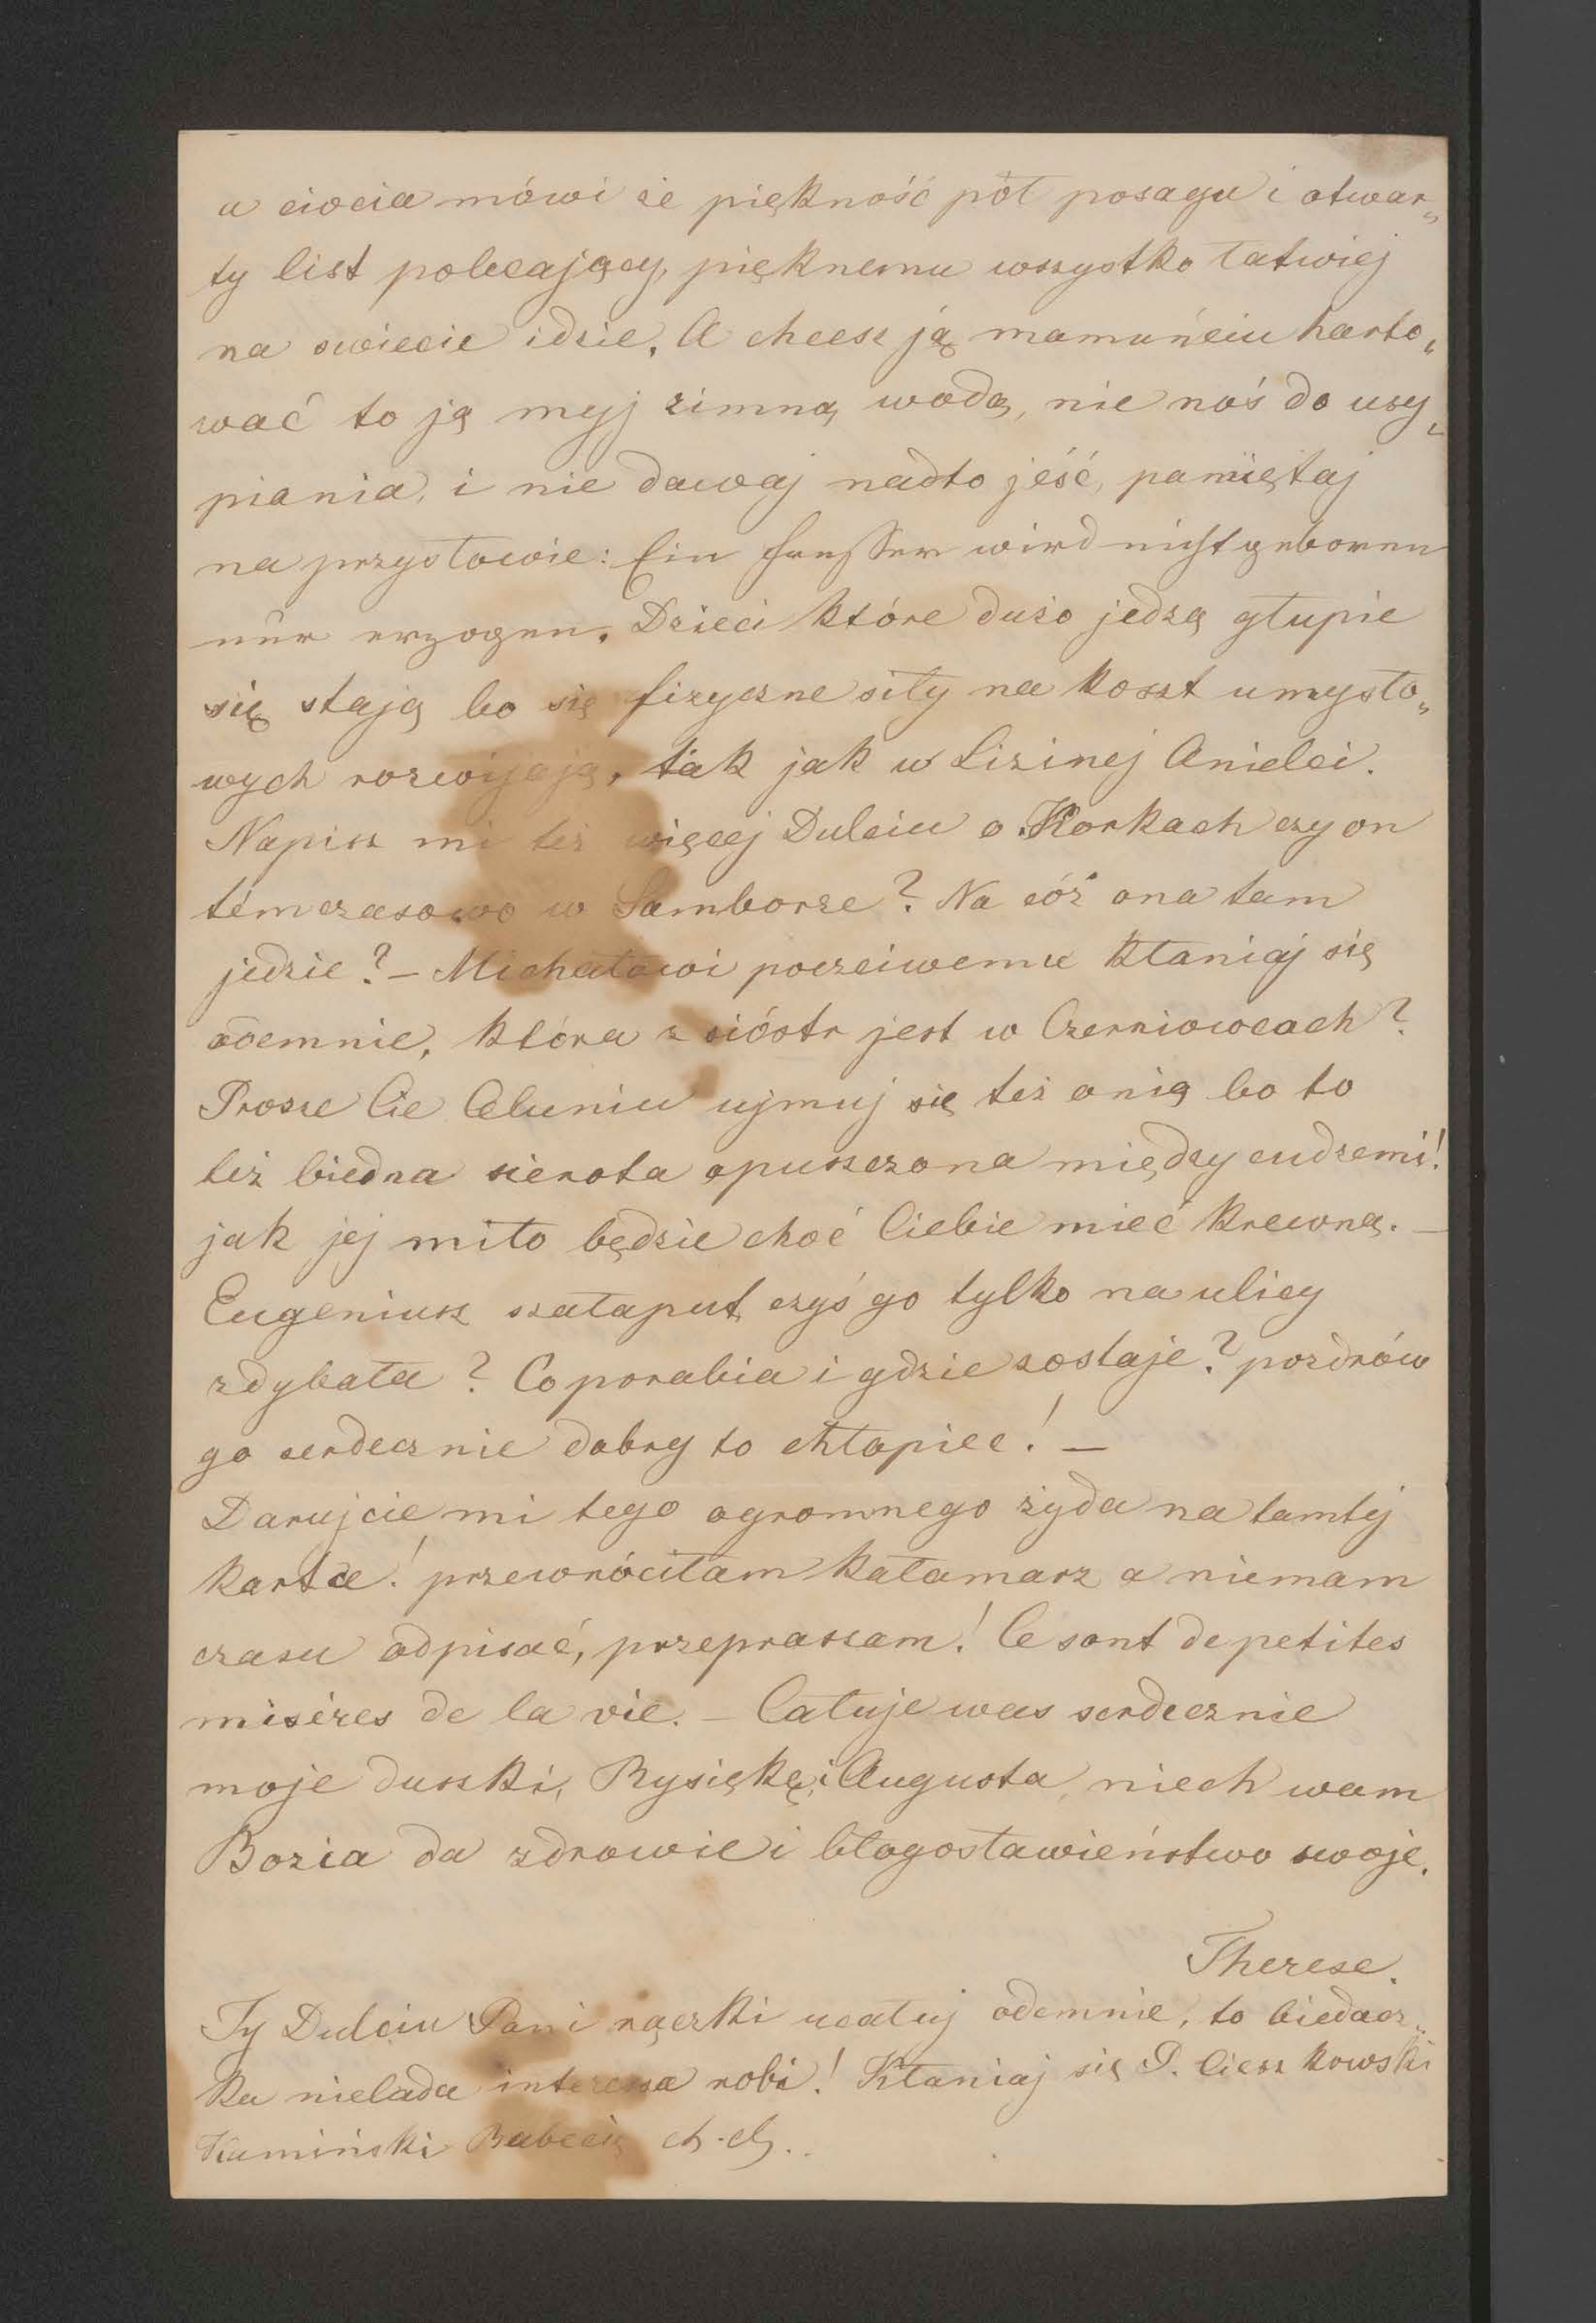 a ciocia mówi że piękność pół posagu i otwar„
ty list polecający, pięknemu wszystko łatwiej
na swiecie idzie. A chcesz ją mamuńciu harto„
wać to ją myj zimną wodą, nie noś do usy„
piania, i nie dawaj nadto jeść, pamiętaj
na przysłowie: Ein Fresser wird nicht geboren
nur erzogen. Dzieci które dużo jedzą głupie
się stają bo się fizyczne siły na koszt umysło„
wych rozwijają, tak jak u Lizinej Anielci.
Napisz mi też więcej Dulciu o Korkach czy on
témczasowo w Samborze? Na cóż ona tam
jedzie? – Michałowi poczciwemu kłaniaj się
odemnie, która z sióstr jest w Czerniowcach?
Prosze Cie Celuniu ujmuj się też o nią bo to
też biedna sierota opuszczona między cudzemi!
jak jej miło będzie choć Ciebie mieć krewną. –
Eugeniusz szałaput czyś go tylko na ulicy
zdybała? Co porabia i gdzie zostaje? pozdrów
go serdecznie dobry to chłopiec! –
Darujcie mi tego ogromnego żyda na tamtéj
kartce! przewróciłam kałamarz a niemam
czasu odpisać, przepraszam! Ce sont de petites
misères de la vie. – Całuje was serdecznie
moje duszki, Rysiękę i Augusta, niech wam
Bozia da zdrowie i błogosławieństwo swoje.
Therese.
Ty Dulciu Pani rączki ucałuj odemnie, to biedacz„
ka nielada interessa robi! Kłaniaj się P. Cieszkowski
Kamiński Babcią